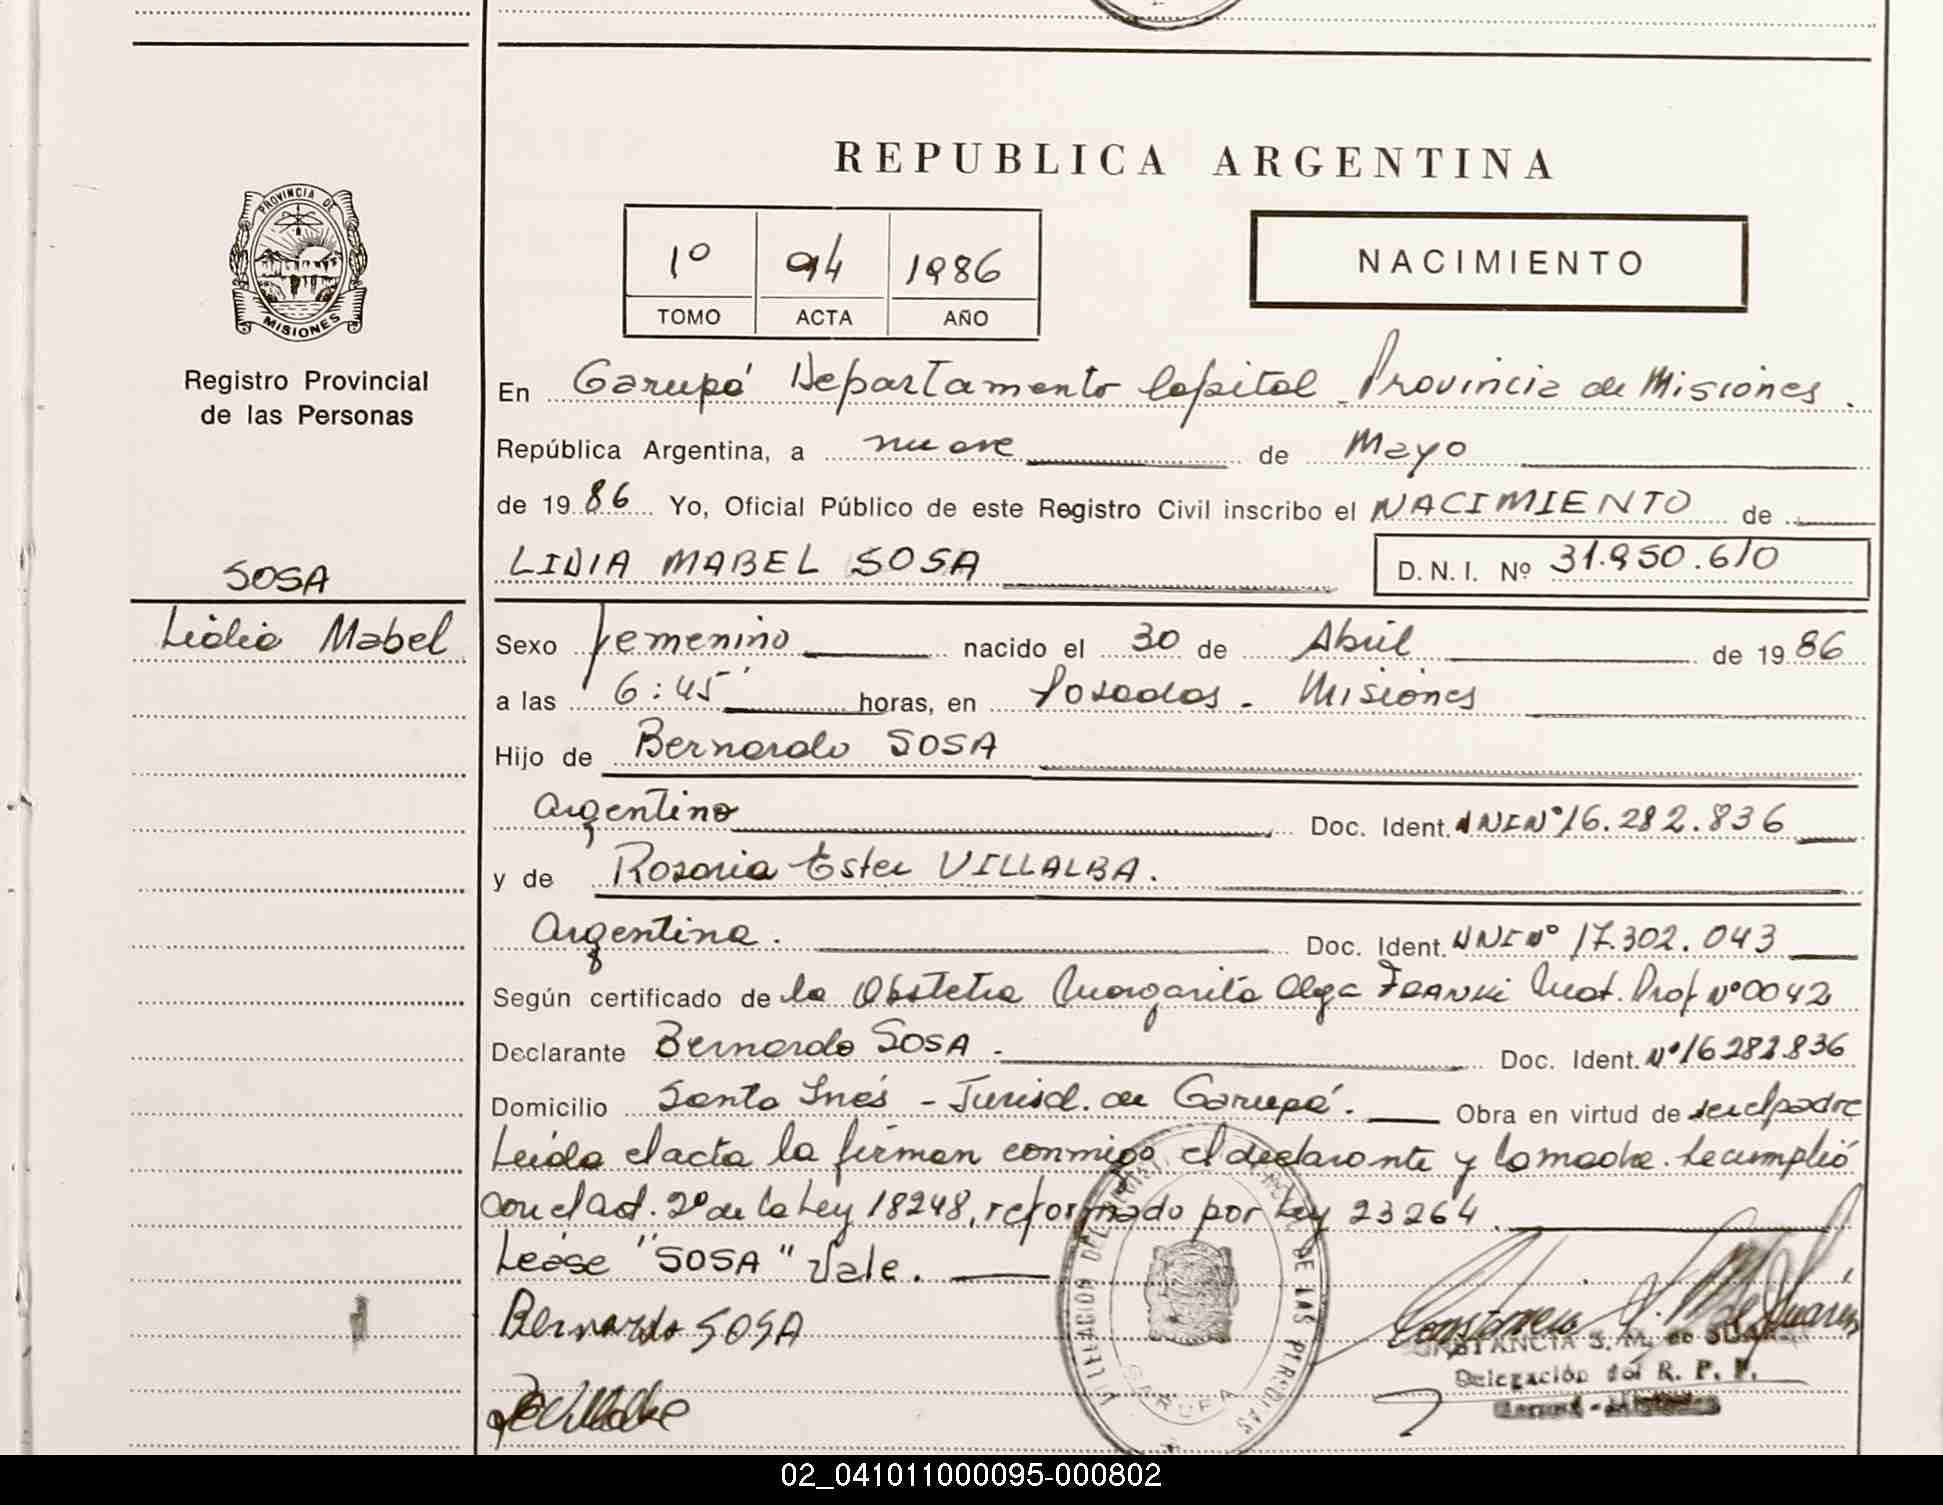 REPUBLICA ARGENTINA
PROVINCIA DE
MISIONES
Registro Provincial
de las Personas
1º 94 1986
TOMO ACTA AÑO
NACIMIENTO
En Garupá Departamento Capital Provincia de Misiones.
República Argentina, a nueve de Mayo
de 1986 Yo, Oficial Público de este Registro Civil inscribo el NACIMIENTO de
LIDIA MABEL SOSA D.N.I. Nº 31.950.610
SOSA
Lidia Mabel
Sexo femenino nacido el 30 de Abril de 1986
a las 6:45 horas, en Posadas - Misiones
Hijo de Bernardo SOSA
argentino Doc. Ident. DNI Nº 16.282.836
y de Rosaria Ester VILLALBA.
Argentina. Doc. Ident. DNI Nº 17.302.043
Según certificado de la Obstetra Margarita Olga Mat. Prof Nº 0042
Declarante Bernardo SOSA - Doc. Ident. Nº 16282836
Domicilio Santa Inés - Jurisd. de Garupá. Obra en virtud de ser el padre
Leída el acta la firman conmigo el declarante y la madre. Se cumplió
con el art. 2º de la Ley 18248, reformado por Ley 23264.
Lease "SOSA" Vale.
Bernardo SOSA
DE LAS PERSONAS
GARUPA
CONSTANCIA S. M. de
Delegación del R. P. P.
02_041011000095-000802